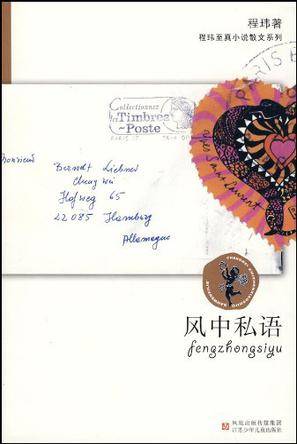 程玮著
程玮至真小说散文系列
PARIS
Collectionnez
les Timbres
~Poste
Monsieur
Berndt Liebner
Cheng Wei
Hofweg 65
22085 Hamburg
Allemagne
Yves Saint Laurent
风中私语
fengzhongsiyu
凤凰出版传媒集团
江苏少年儿童出版社